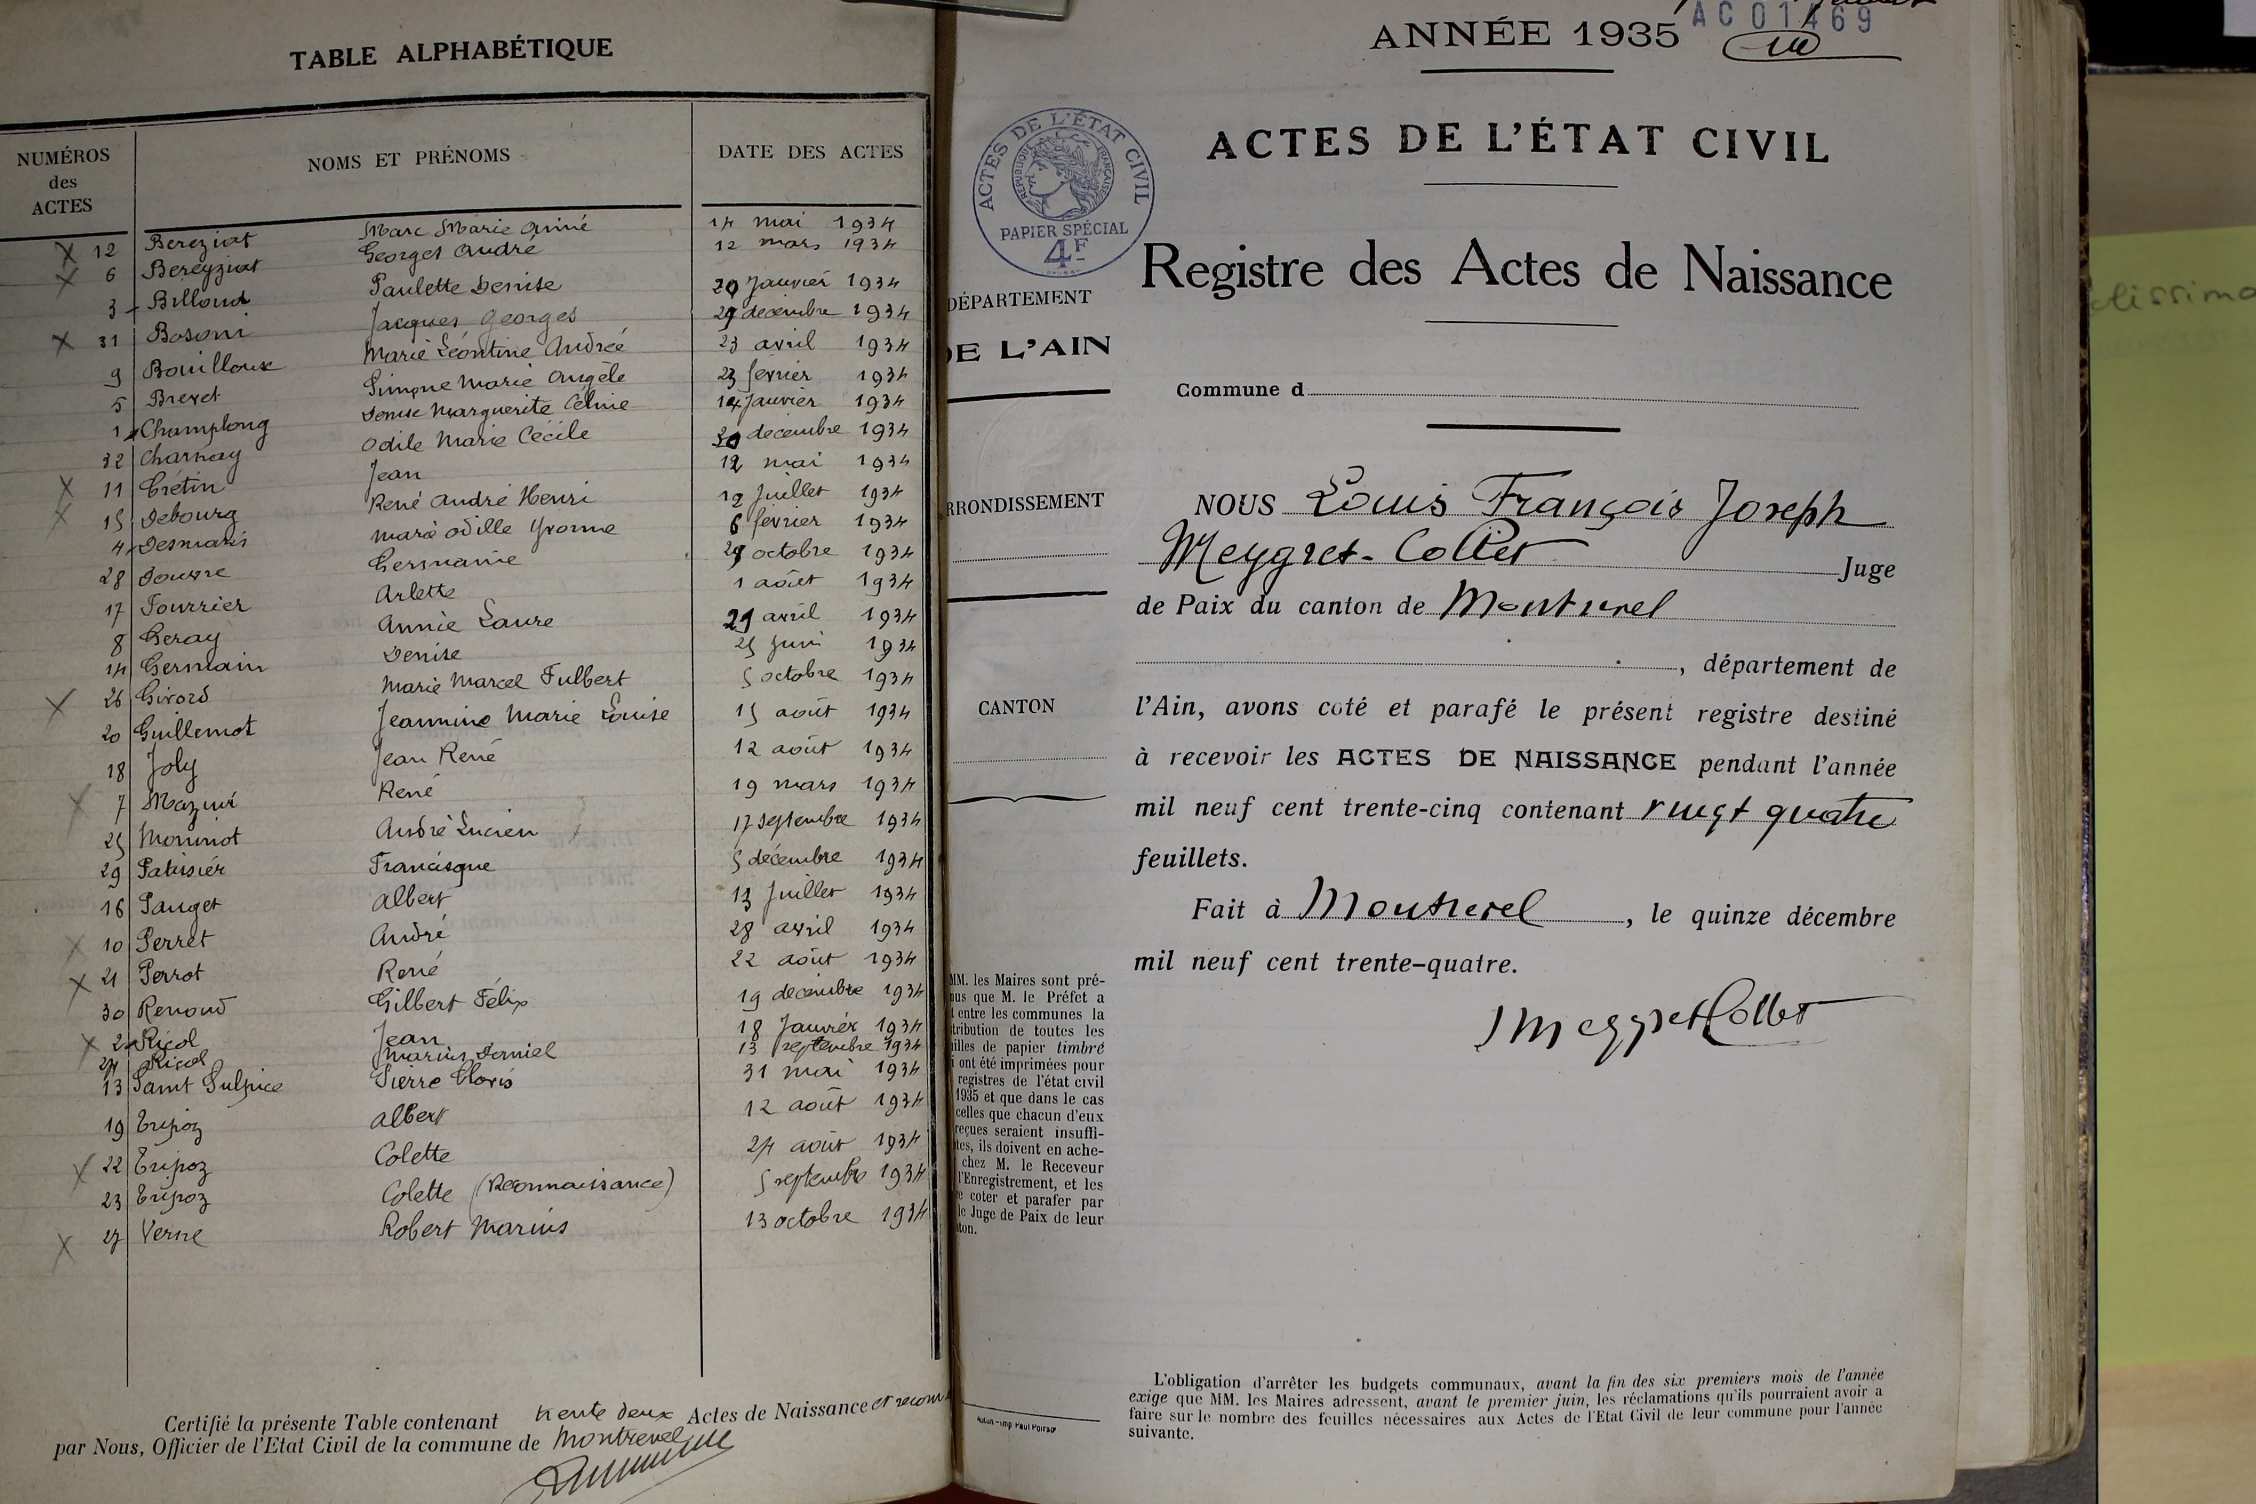 TABLE ALPHABÉTIQUE
NUMÉROS des ACTES NOMS ET PRÉNOMS DATE DES ACTES
12 Bereziat Marc Marie Aimé 14 mai 1934
6 Bereyziat Georges André 12 mars 1934
3 Billoud Paulette Denise 20 Janvier 1934
31 Bosoni Jacques Georges 29 décembre 1934
9 Bouilloux Marie Léontine Andrée 23 avril 1934
5 Brevet Simone Marie Angèle 23 février 1934
1 Champlong Denise Marguerite Céline 14 Janvier 1934
32 Charnay Odile Marie Cécile 30 décembre 1934
11 Crétin Jean 12 mai 1934
15 Debourg René André Henri 12 Juillet 1934
4 Desmaris Marie Odille Yvonne 6 février 1934
28 Douvre Germaine 29 octobre 1934
17 Fourrier Arlette 1 août 1934
8 Geray Annie Laure 21 avril 1934
14 Germain Denise 25 Juin 1934
26 Girord Marie Marcel Fulbert 5 octobre 1934
20 Guillemot Jeannine Marie Louise 15 août 1934
18 Joly Jean René 12 août 1934
7 Mazuir René 19 mars 1934
25 Moninot André Lucien 17 septembre 1934
29 Patissier Francisque 5 décembre 1934
16 Pauget Albert 13 Juillet 1934
10 Perret André 28 avril 1934
21 Perrot René 22 août 1934
30 Renoud Gilbert Félix 19 décembre 1934
2 Ricol Jean 18 Janvier 1934
24 Ricol Marius Daniel 13 septembre 1934
13 Saint Sulpice Pierre Clovis 31 mai 1934
19 Tripoz Albert 12 août 1934
22 Tripoz Colette 24 août 1934
23 Tripoz Colette (Reconnaissance) 5 septembre 1934
27 Verne Robert Marius 13 octobre 1934
Certifié la présente Table contenant trente deux Actes de Naissance et reconn
par Nous, Officier de l'Etat Civil de la commune de Montrevel
AC01469
ANNÉE 1935
ACTES DE L'ÉTAT CIVIL
ACTES DE L'ÉTAT CIVIL
RÉPUBLIQUE FRANÇAISE
PAPIER SPÉCIAL
4F
Registre des Actes de Naissance
DÉPARTEMENT
DE L'AIN
Commune d
RRONDISSEMENT
CANTON
NOUS Louis François Joseph
Meygret-Collet Juge
de Paix du canton de Montrevel
, département de
l'Ain, avons coté et parafé le présent registre destiné
à recevoir les ACTES DE NAISSANCE pendant l'année
mil neuf cent trente-cinq contenant vingt quatre
feuillets.
Fait à Montrevel, le quinze décembre
mil neuf cent trente-quatre.
Meygret Collet
MM. les Maires sont pré-
nus que M. le Préfet a
t entre les communes la
tribution de toutes les
illes de papier timbré
i ont été imprimées pour
registres de l'état civil
1935 et que dans le cas
celles que chacun d'eux
reçues seraient insuffi-
tes, ils doivent en ache-
chez M. le Receveur
l'Enregistrement, et les
e coter et parafer par
le Juge de Paix de leur
ton.
Autun - Imp Paul Poirson
L'obligation d'arrêter les budgets communaux, avant la fin des six premiers mois de l'année
exige que MM. les Maires adressent, avant le premier juin, les réclamations qu'ils pourraient avoir a
faire sur le nombre des feuilles nécessaires aux Actes de l'Etat Civil de leur commune pour l'année
suivante.